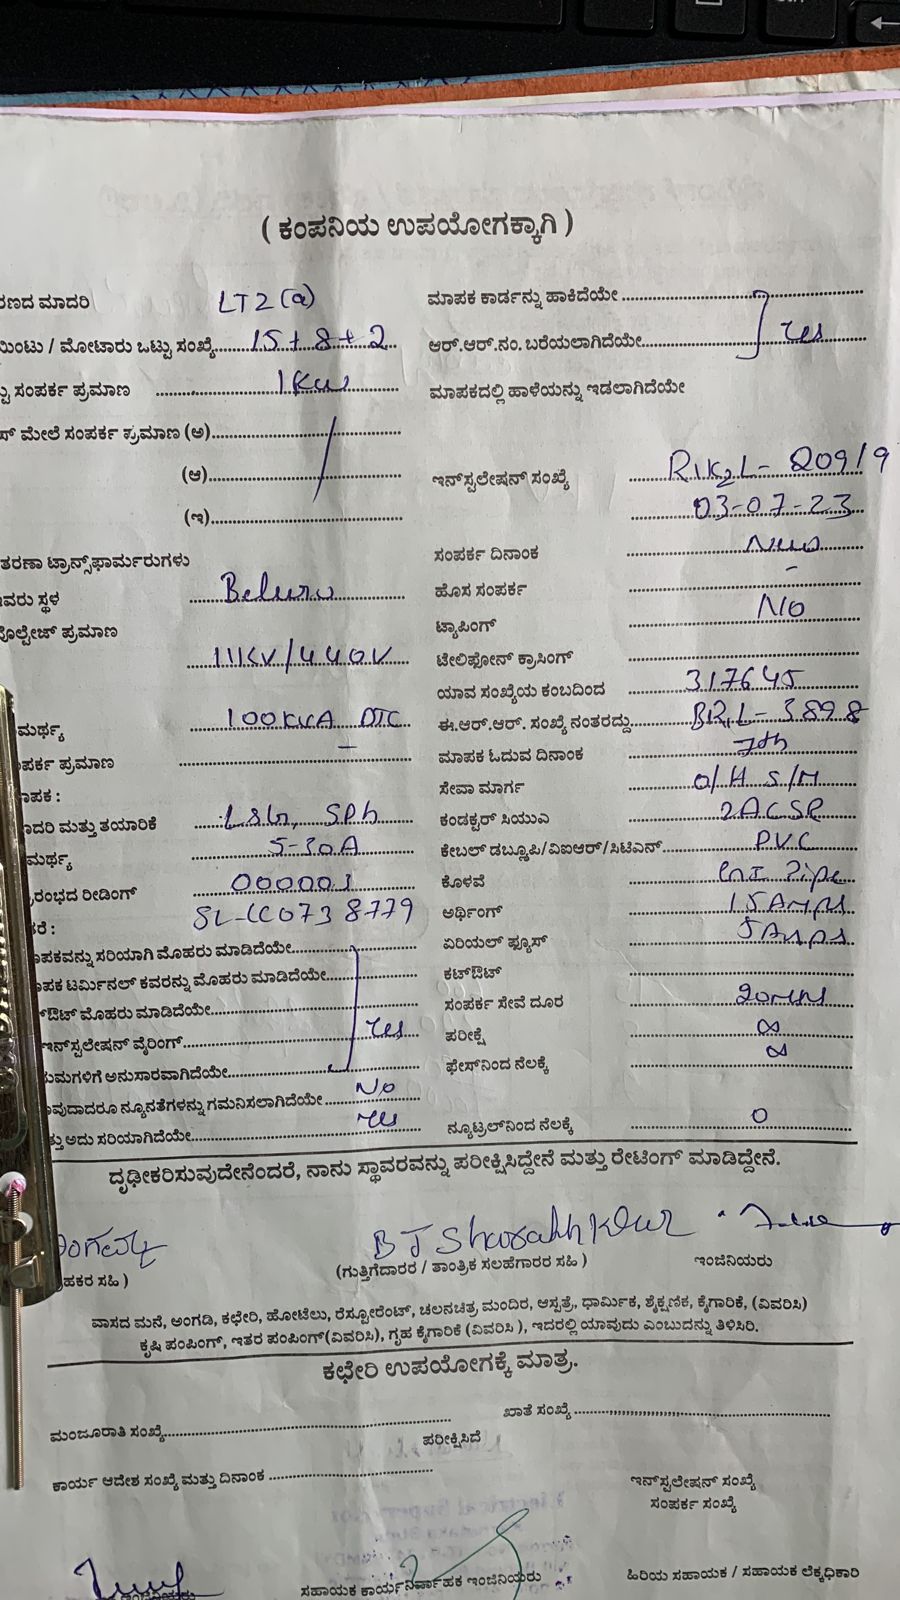 ( ಕಂಪನಿಯ ಉಪಯೋಗಕ್ಕಾಗಿ )
ರಣದ ಮಾದರಿ LT2(a)
ಯಿಂಟು / ಮೋಟಾರು ಒಟ್ಟು ಸಂಖ್ಯೆ 15+8+2
ಟ್ಟು ಸಂಪರ್ಕ ಪ್ರಮಾಣ 1Kw
ಮೇಲೆ ಸಂಪರ್ಕ ಪ್ರಮಾಣ (ಅ)
(ಆ)
(ಇ)
ತರಣಾ ಟ್ರಾನ್ಸ್‌ಫಾರ್ಮರುಗಳು
ವರು ಸ್ಥಳ Beluru
ವೋಲ್ಟೇಜ್ ಪ್ರಮಾಣ
11KV/440V
ಮರ್ಥ್ಯ 100KVA DTC
ಪರ್ಕ ಪ್ರಮಾಣ –
ಾಪಕ :
ಾದರಿ ಮತ್ತು ತಯಾರಿಕೆ L&G, SPh
ಮರ್ಥ್ಯ 5-30A
ರಂಭದ ರೀಡಿಂಗ್ 000001
ರೆ : SL-CC0738779
ಾಪಕವನ್ನು ಸರಿಯಾಗಿ ಮೊಹರು ಮಾಡಿದೆಯೇ
ಾಪಕ ಟರ್ಮಿನಲ್ ಕವರನ್ನು ಮೊಹರು ಮಾಡಿದೆಯೇ
ಔಟ್ ಮೊಹರು ಮಾಡಿದೆಯೇ
ಇನ್‌ಸ್ಟಲೇಷನ್ ವೈರಿಂಗ್ Yes
ಯಮಗಳಿಗೆ ಅನುಸಾರವಾಗಿದೆಯೇ
ವುದಾದರೂ ನ್ಯೂನತೆಗಳನ್ನು ಗಮನಿಸಲಾಗಿದೆಯೇ No
ತ್ತು ಅದು ಸರಿಯಾಗಿದೆಯೇ Yes
ಮಾಪಕ ಕಾರ್ಡನ್ನು ಹಾಕಿದೆಯೇ
ಆರ್.ಆರ್.ನಂ. ಬರೆಯಲಾಗಿದೆಯೇ Yes
ಮಾಪಕದಲ್ಲಿ ಹಾಳೆಯನ್ನು ಇಡಲಾಗಿದೆಯೇ
ಇನ್‌ಸ್ಟಲೇಷನ್ ಸಂಖ್ಯೆ
03-07-23
ಸಂಪರ್ಕ ದಿನಾಂಕ New
ಹೊಸ ಸಂಪರ್ಕ –
ಟ್ಯಾಪಿಂಗ್ No
ಟೇಲಿಫೋನ್ ಕ್ರಾಸಿಂಗ್
ಯಾವ ಸಂಖ್ಯೆಯ ಕಂಬದಿಂದ 317645
ಈ.ಆರ್.ಆರ್. ಸಂಖ್ಯೆ ನಂತರದ್ದು
ಮಾಪಕ ಓದುವ ದಿನಾಂಕ 7th
ಸೇವಾ ಮಾರ್ಗ O/H S/M
ಕಂಡಕ್ಟರ್ ಸಿಯುಎ 2ACSR
ಕೇಬಲ್ ಡಬ್ಲೂಪಿ/ವಿಐಆರ್/ಸಿಟಿಎಸ್ PVC
ಕೊಳವೆ GI Pipe
ಅರ್ಥಿಂಗ್ 15Amps
ಏರಿಯಲ್ ಫ್ಯೂಸ್ 5Amps
ಕಟ್‌ಔಟ್
ಸಂಪರ್ಕ ಸೇವೆ ದೂರ 20mtrs
ಪರೀಕ್ಷೆ ∞
ಫೇಸ್‌ನಿಂದ ನೆಲಕ್ಕೆ ∞
ನ್ಯೂಟ್ರಲ್‌ನಿಂದ ನೆಲಕ್ಕೆ 0
ದೃಢೀಕರಿಸುವುದೇನೆಂದರೆ, ನಾನು ಸ್ಥಾವರವನ್ನು ಪರೀಕ್ಷಿಸಿದ್ದೇನೆ ಮತ್ತು ರೇಟಿಂಗ್ ಮಾಡಿದ್ದೇನೆ.
ಹಕರ ಸಹಿ )
(ಗುತ್ತಿಗೆದಾರರ / ತಾಂತ್ರಿಕ ಸಲಹೆಗಾರರ ಸಹಿ )
ಇಂಜಿನಿಯರು
ವಾಸದ ಮನೆ, ಅಂಗಡಿ, ಕಛೇರಿ, ಹೋಟೆಲು, ರೆಸ್ಟೋರೆಂಟ್, ಚಲನಚಿತ್ರ ಮಂದಿರ, ಆಸ್ಪತ್ರೆ, ಧಾರ್ಮಿಕ, ಶೈಕ್ಷಣಿಕ, ಕೈಗಾರಿಕೆ, (ವಿವರಿಸಿ)
ಕೃಷಿ ಪಂಪಿಂಗ್, ಇತರ ಪಂಪಿಂಗ್(ವಿವರಿಸಿ), ಗೃಹ ಕೈಗಾರಿಕೆ (ವಿವರಿಸಿ ), ಇದರಲ್ಲಿ ಯಾವುದು ಎಂಬುದನ್ನು ತಿಳಿಸಿರಿ.
ಕಛೇರಿ ಉಪಯೋಗಕ್ಕೆ ಮಾತ್ರ.
ಮಂಜೂರಾತಿ ಸಂಖ್ಯೆ
ಖಾತೆ ಸಂಖ್ಯೆ
ಪರೀಕ್ಷಿಸಿದೆ
ಕಾರ್ಯ ಆದೇಶ ಸಂಖ್ಯೆ ಮತ್ತು ದಿನಾಂಕ
ಇನ್‌ಸ್ಟಲೇಷನ್ ಸಂಖ್ಯೆ
ಸಂಪರ್ಕ ಸಂಖ್ಯೆ
ಇಂಜಿನಿಯರು
ಸಹಾಯಕ ಕಾರ್ಯನಿರ್ವಾಹಕ ಇಂಜಿನಿಯರು
ಹಿರಿಯ ಸಹಾಯಕ / ಸಹಾಯಕ ಲೆಕ್ಕಧಿಕಾರಿ